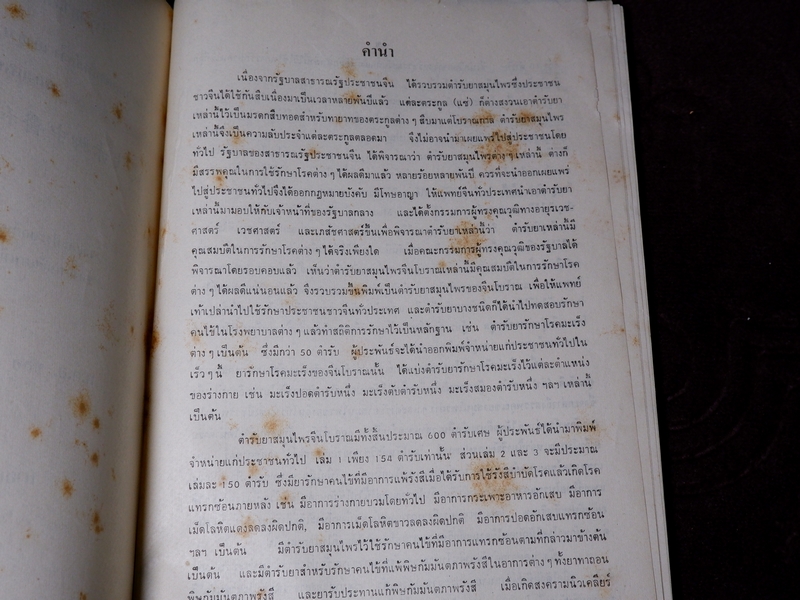 คำนำ
เนื่องจากรัฐบาลสาธารณรัฐประชาชนจีน ได้รวบรวมตำรับยาสมุนไพรซึ่งประชาชน
ชาวจีนได้ใช้กันสืบเนื่องมาเป็นเวลาหลายพันปีแล้ว แต่ละตระกูล (แซ่) ก็ต่างสงวนเอาตำรับยา
เหล่านี้ไว้เป็นมรดกสืบทอดสำหรับทายาทของตระกูลต่าง ๆ สืบมาแต่โบราณกาล ตำรับยาสมุนไพร
เหล่านี้จึงเป็นความลับประจำแต่ละตระกูลตลอดมา จึงไม่อาจนำมาเผยแพร่ไปสู่ประชาชนโดย
ทั่วไป รัฐบาลของสาธารณรัฐประชาชนจีน ได้พิจารณาว่า ตำรับยาสมุนไพรต่าง ๆ เหล่านี้ ต่างก็
มีสรรพคุณในการใช้รักษาโรคต่าง ๆ ได้ผลดีมาแล้ว หลายร้อยหลายพันปี ควรที่จะนำออกเผยแพร่
ไปสู่ประชาชนทั่วไปจึงได้ออกกฎหมายบังคับ มีโทษอาญา ให้แพทย์จีนทั่วประเทศนำเอาตำรับยา
เหล่านี้มามอบให้กับเจ้าหน้าที่ของรัฐบาลกลาง และได้ตั้งกรรมการผู้ทรงคุณวุฒิทางอายุรเวช-
ศาสตร์ เวชศาสตร์ และเภสัชศาสตร์ขึ้นเพื่อพิจารณาตำรับยาเหล่านี้ว่า ตำรับยาเหล่านี้มี
คุณสมบัติในการรักษาโรคต่าง ๆ ได้จริงเพียงใด เมื่อคณะกรรมการผู้ทรงคุณวุฒิของรัฐบาลได้
พิจารณาโดยรอบคอบแล้ว เห็นว่าตำรับยาสมุนไพรจีนโบราณเหล่านี้มีคุณสมบัติในการรักษาโรค
ต่าง ๆ ได้ผลดีแน่นอนแล้ว จึงรวบรวมขึ้นพิมพ์เป็นตำรับยาสมุนไพรของจีนโบราณ เพื่อให้แพทย์
เท้าเปล่านำไปใช้รักษาประชาชนชาวจีนทั่วประเทศ และตำรับยาบางชนิดก็ได้นำไปทดสอบรักษา
คนไข้ในโรงพยาบาลต่าง ๆ แล้วทำสถิติการรักษาไว้เป็นหลักฐาน เช่น ตำรับยารักษาโรคมะเร็ง
ต่าง ๆ เป็นต้น ซึ่งมีกว่า 50 ตำรับ ผู้ประพันธ์จะได้นำออกพิมพ์จำหน่ายแก่ประชาชนทั่วไปใน
เร็ว ๆ นี้ ยารักษาโรคมะเร็งของจีนโบราณนั้น ได้แบ่งตำรับยารักษาโรคมะเร็งไว้แต่ละตำแหน่ง
ของร่างกาย เช่น มะเร็งปอดตำรับหนึ่ง มะเร็งตับตำรับหนึ่ง มะเร็งสมองตำรับหนึ่ง ฯลฯ เหล่านี้
เป็นต้น
ตำรับยาสมุนไพรจีนโบราณมีทั้งสิ้นประมาณ 600 ตำรับเศษ ผู้ประพันธ์ได้นำมาพิมพ์
จำหน่ายแก่ประชาชนทั่วไป เล่ม 1 เพียง 154 ตำรับเท่านั้น ส่วนเล่ม 2 และ 3 จะมีประมาณ
เล่มละ 150 ตำรับ ซึ่งมียารักษาคนไข้ที่มีอาการแพ้รังสีเมื่อได้รับการใช้รังสีบำบัดโรคแล้วเกิดโรค
แทรกซ้อนภายหลัง เช่น มีอาการร่างกายบวมโดยทั่วไป มีอาการกระเพาะอาหารอักเสบ มีอาการ
เม็ดโลหิตแดงลดลงผิดปกติ, มีอาการเม็ดโลหิตขาวลดลงผิดปกติ มีอาการปอดอักเสบแทรกซ้อน
ฯลฯ เป็นต้น มีตำรับยาสมุนไพรไว้ใช้รักษาคนไข้ที่มีอาการแทรกซ้อนตามที่กล่าวมาข้างต้น
เป็นต้น และมีตำรับยาสำหรับรักษาคนไข้ที่แพ้พิษกัมมันตภาพรังสีในอาการต่าง ๆ ทั้งยาทาถอน
พิษกัมมันตภาพรังสี และยารับประทานแก้พิษกัมมันตภาพรังสี เมื่อเกิดสงครามนิวเคลียร์